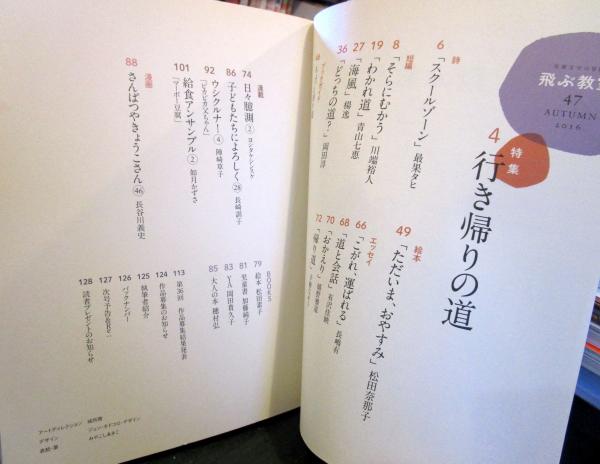 飛ぶ教室
47
AUTUMN
2016
4 特集
行き帰りの道
詩
6 「スクールゾーン」 最果タヒ
短編
8 「そらにむかう」 川端裕人
19 「わかれ道」 青山七恵
27 「海風」 楊逸
36 「どっちの道?」 岡田淳
絵本
49 「ただいま、おやすみ」 松田奈那子
エッセイ
66 「こがれ、運ばれる」
68 「道と会話」 長嶋有
70 「おかえり」 有沢佳映
72 「帰り道」
連載
74 日々臆測 ② ヨシタケシンスケ
86 子どもたちによろしく ㉘ 長崎訓子
92 ウシクルナ! ④ 陣崎草子
「ピカピカ父ちゃん」
101 給食アンサンブル ② 如月かずさ
「マーボー豆腐」
漫画
88 さんぱつやきょうこさん ㊻ 長谷川義史
BOOKS
79 絵本 松田素子
81 児童書 加藤純子
83 YA 岡田貴久子
85 大人の本 穂村弘
113 第36回 作品募集結果発表
124 作品募集のお知らせ
125 執筆者紹介
126 バックナンバー
127 次号予告&
128 読者プレゼントのお知らせ
アートディレクション 城所潤
デザイン ジュン・キドコロ・デザイン
表紙・扉 みやこしあきこ